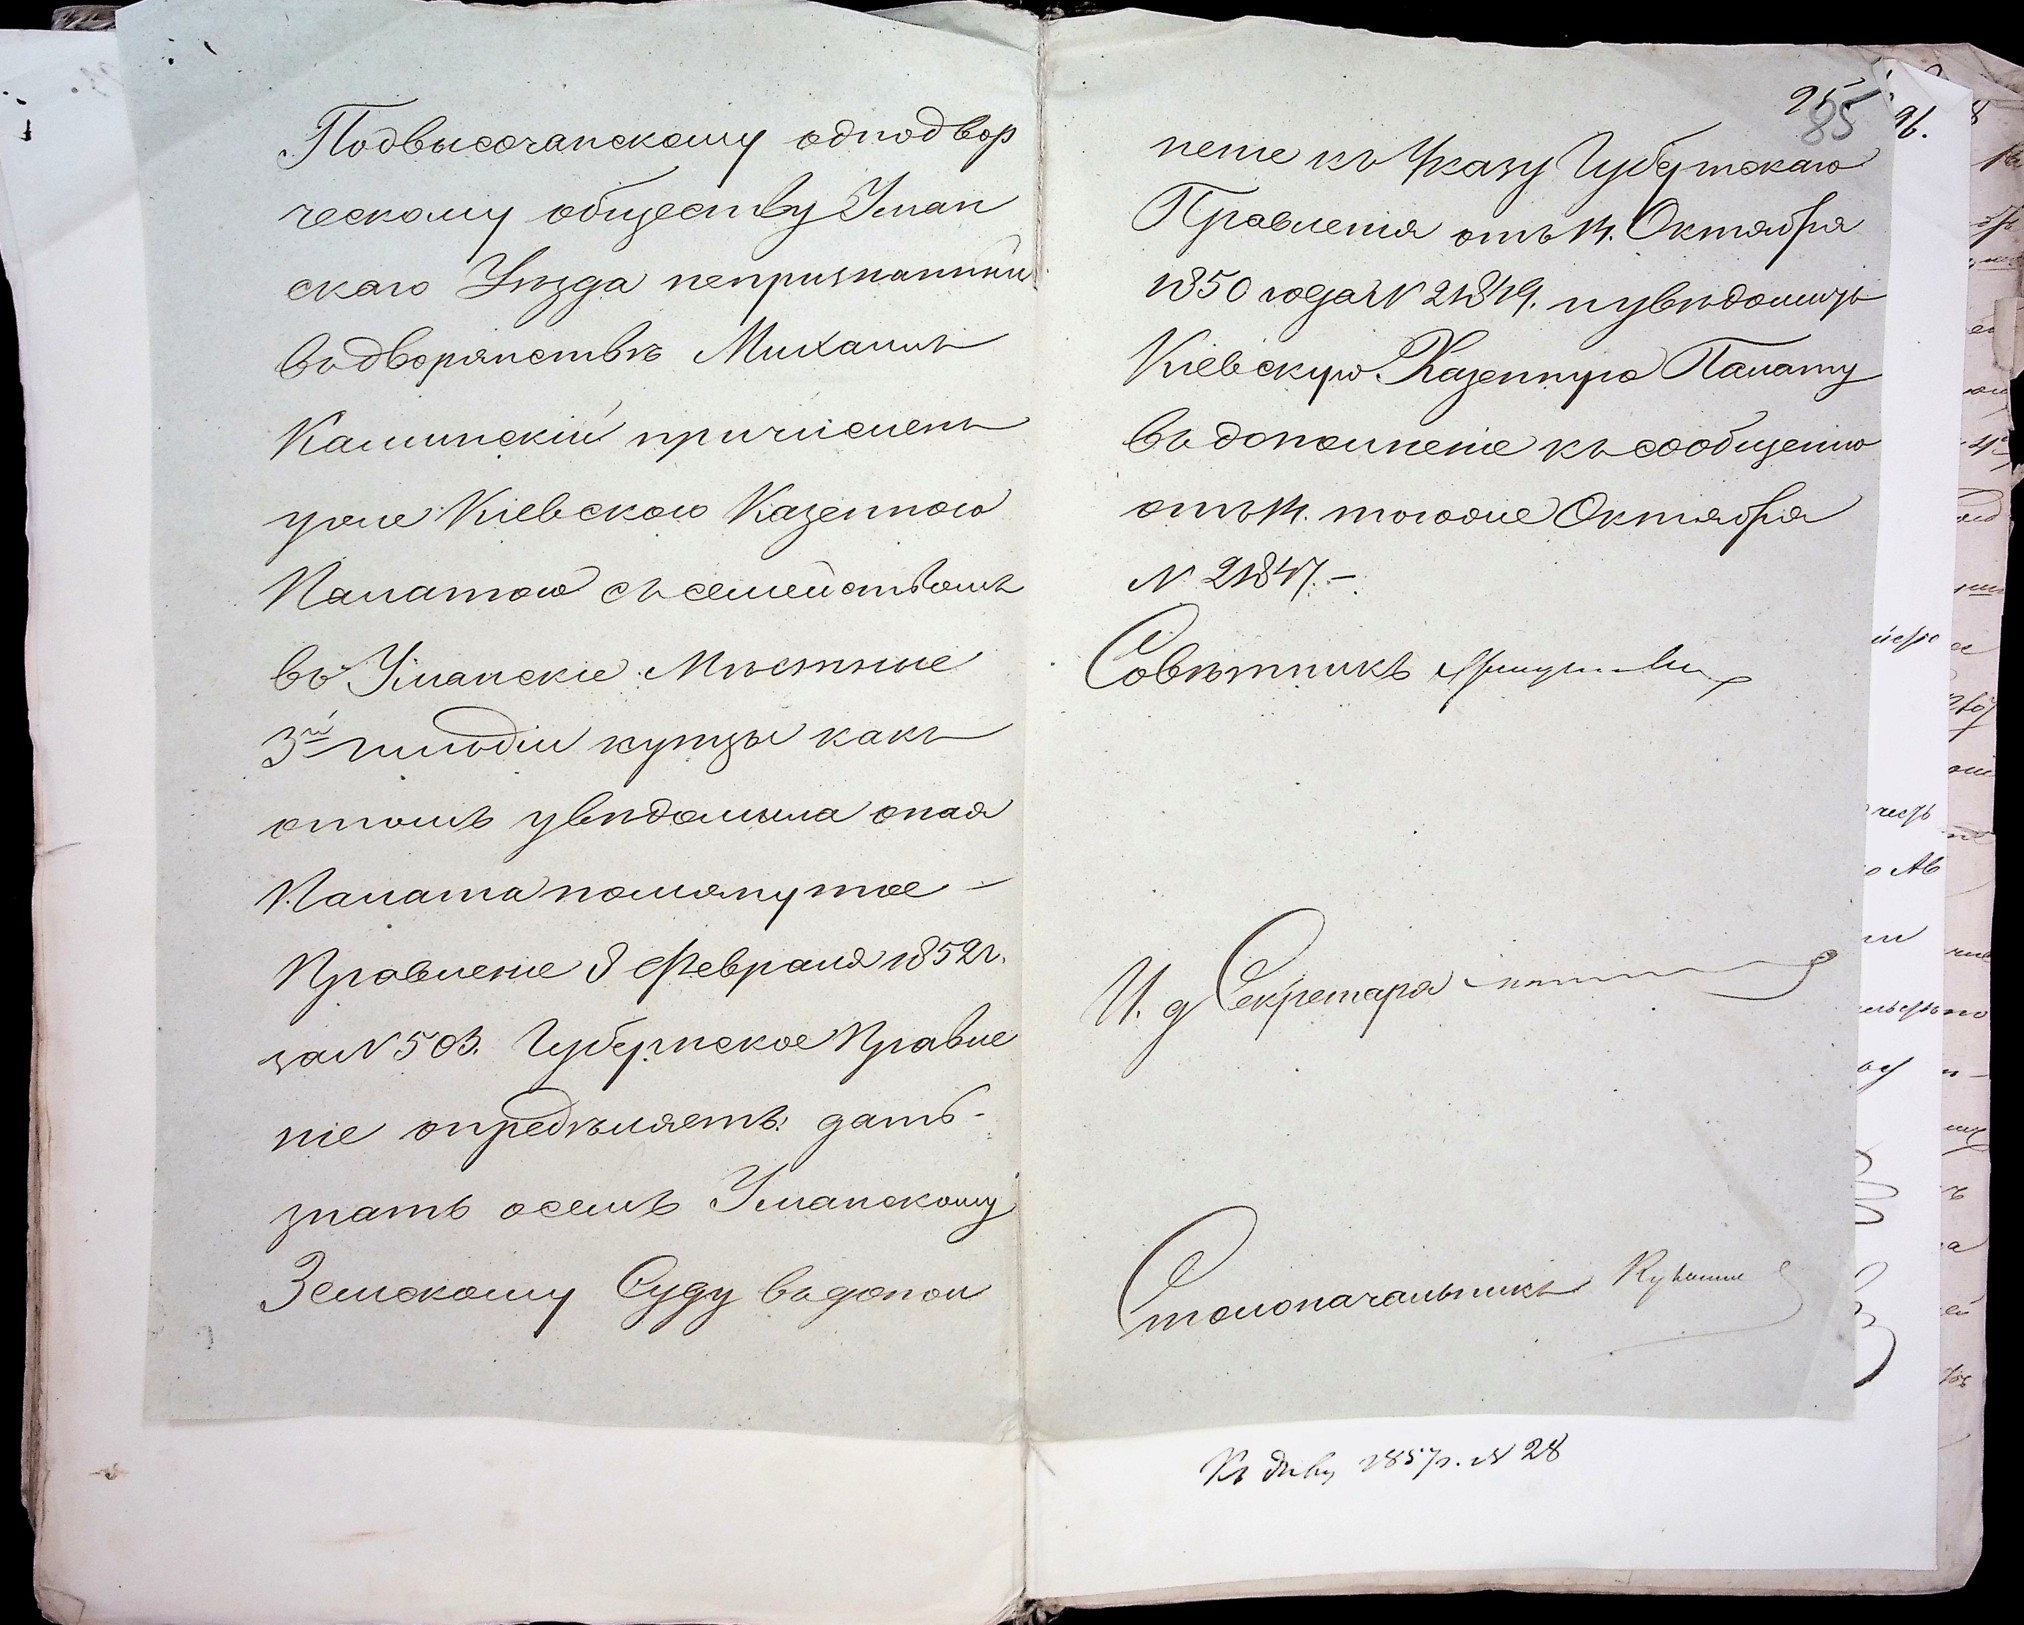 Подвысочанскому однодвор
ческому обществу Уман
скаго Уѣзда непризнанный
въ дворянствѣ Михаилъ
Калинскій причисленъ
уже Кіевскою Казенною
Палатою съ семействомъ
въ Уманскіе Мѣстные
3й гильдіи купцы какъ
о томъ увѣдомила оная
Палата помянутое
Правленіе 8 Февраля 1852 г.
за N 503. Губернское Правле
ніе опредѣляетъ: дать
знать о семъ Уманскому
Земскому Суду въ допол
95
85
неніе къ Указу Губернскаго
Правленія отъ 14. Октября
1850 года N 21849. и увѣдомить
Кіевскую Казенную Палату
въ дополненіе къ сообщенію
отъ 14. того же Октября
N 21847. –
Совѣтникъ
И. д Секретаря
Столоначальникъ
Къ дѣлу 1857 г. N 28
96.